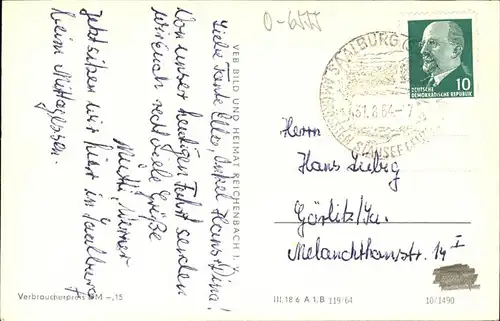 Liebe Tante Ella, Onkel Hans, Dina!
Von unser heutigen Fahrt senden
wir euch recht viele Grüße
Mutti, Werner
Jetzt sitzen wir hier in Saalburg
beim Mittagessen.
VEB BILD UND HEIMAT REICHENBACH I. V.
Verbraucherpreis DM –,15
O-6555
SAALBURG
31.8.64-7
DEUTSCHE
DEMOKRATISCHE REPUBLIK
10
Herrn
Hans Liebig
Görlitz/Sa.
Melanchthonstr. 14 I
III.18 6 A 1.B 119/64
10/1490